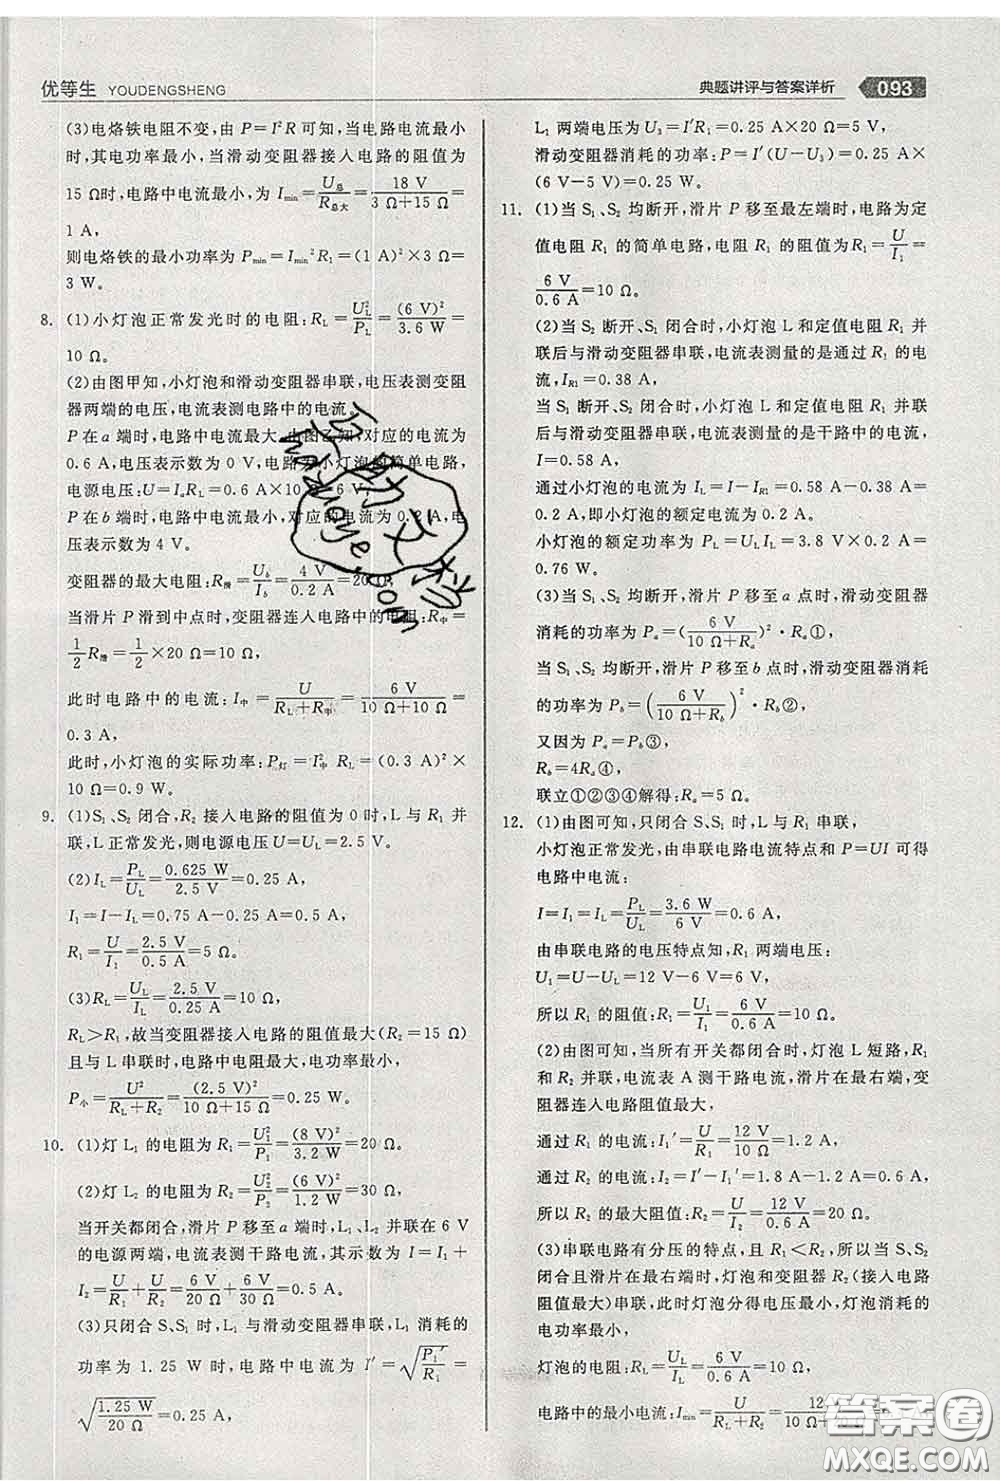 优等生 YOUDENGSHENG
典题讲评与答案详析 093
(3)电烙铁电阻不变,由 P=I²R 可知,当电路电流最小
时,其电功率最小,当滑动变阻器接入电路的阻值为
15 Ω时,电路中电流最小,为 I_min=U_总/R_总大=18 V/(3 Ω+15 Ω)=
1 A,
则电烙铁的最小功率为 P_min=I_min²R₁=(1 A)²×3 Ω=
3 W。
8. (1)小灯泡正常发光时的电阻:R_L=U_L²/P_L=(6 V)²/3.6 W=
10 Ω。
(2)由图甲知,小灯泡和滑动变阻器串联,电压表测变阻
器两端的电压,电流表测电路中的电流。
P 在 a 端时,电路中电流最大,由图乙知,对应的电流为
0.6 A,电压表示数为 0 V,电路为小灯泡的简单电路,
电源电压:U=I_aR_L=0.6 A×10 Ω=6 V,
P 在 b 端时,电路中电流最小,对应的电流为0.2 A,电
压表示数为 4 V。
变阻器的最大电阻:R_滑=U_b/I_b=4 V/0.2 A=20 Ω,
当滑片 P 滑到中点时,变阻器连入电路中的电阻:R_中=
1/2 R_滑=1/2×20 Ω=10 Ω,
此时电路中的电流:I_中=U/(R_L+R_中)=6 V/(10 Ω+10 Ω)=
0.3 A,
此时,小灯泡的实际功率:P_灯=I_中² R_L=(0.3 A)²×
10 Ω=0.9 W。
9. (1)S₁、S₂ 闭合,R₂ 接入电路的阻值为 0 时,L 与 R₁ 并
联,L 正常发光,则电源电压 U=U_L=2.5 V。
(2)I_L=P_L/U_L=0.625 W/2.5 V=0.25 A,
I₁=I-I_L=0.75 A-0.25 A=0.5 A,
R₁=U/I₁=2.5 V/0.5 A=5 Ω。
(3)R_L=U_L/I_L=2.5 V/0.25 A=10 Ω,
R_L>R₁,故当变阻器接入电路的阻值最大(R₂=15 Ω)
且与 L 串联时,电路中电阻最大,电功率最小,
P_小=U²/(R_L+R₂)=(2.5 V)²/(10 Ω+15 Ω)=0.25 W。
10. (1)灯 L₁ 的电阻为 R₁=U₁²/P₁=(8 V)²/3.2 W=20 Ω。
(2)灯 L₂ 的电阻为 R₂=U₂²/P₂=(6 V)²/1.2 W=30 Ω,
当开关都闭合,滑片 P 移至 a 端时,L₁、L₂ 并联在 6 V
的电源两端,电流表测干路电流,其示数为 I=I₁+
I₂=U/R₁+U/R₂=6 V/20 Ω+6 V/30 Ω=0.5 A。
(3)只闭合 S、S₁ 时,L₁ 与滑动变阻器串联,L₁ 消耗的
功率为 1.25 W时,电路中电流为 I′=√(P₁′/R₁)=
√(1.25 W/20 Ω)=0.25 A,
L₁ 两端电压为 U₃=I′R₁=0.25 A×20 Ω=5 V,
滑动变阻器消耗的功率:P=I′(U-U₃)=0.25 A×
(6 V-5 V)=0.25 W。
11. (1)当 S₁、S₂ 均断开,滑片 P 移至最左端时,电路为定
值电阻 R₁ 的简单电路,电阻 R₁ 的阻值为R₁=U/I₁=
6 V/0.6 A=10 Ω。
(2)当 S₂ 断开、S₁ 闭合时,小灯泡 L 和定值电阻 R₁ 并
联后与滑动变阻器串联,电流表测量的是通过 R₁ 的电
流,I_R1=0.38 A,
当 S₁ 断开、S₂ 闭合时,小灯泡 L 和定值电阻 R₁ 并联
后与滑动变阻器串联,电流表测量的是干路中的电流,
I=0.58 A,
通过小灯泡的电流为 I_L=I-I_R1=0.58 A-0.38 A=
0.2 A,即小灯泡的额定电流为 0.2 A。
小灯泡的额定功率为 P_L=U_LI_L=3.8 V×0.2 A=
0.76 W。
(3)当 S₁、S₂ 均断开,滑片 P 移至 a 点时,滑动变阻器
消耗的功率为 P_a=(6 V/(10 Ω+R_a))²·R_a①,
当 S₁、S₂ 均断开,滑片 P 移至 b 点时,滑动变阻器消耗
的功率为 P_b=(6 V/(10 Ω+R_b))²·R_b②,
又因为 P_a=P_b③,
R_b=4R_a④,
联立①②③④解得:R_a=5 Ω。
12. (1)由图可知,只闭合 S、S₁ 时,L 与 R₁ 串联,
小灯泡正常发光,由串联电路电流特点和 P=UI 可得
电路中电流:
I=I₁=I_L=P_L/U_L=3.6 W/6 V=0.6 A,
由串联电路的电压特点知,R₁ 两端电压:
U₁=U-U_L=12 V-6 V=6 V,
所以 R₁ 的阻值:R₁=U₁/I₁=6 V/0.6 A=10 Ω。
(2)由图可知,当所有开关都闭合时,灯泡 L 短路,R₁
和 R₂ 并联,电流表 A 测干路电流,滑片在最右端,变
阻器连入电路阻值最大,
通过 R₁ 的电流:I₁′=U/R₁=12 V/10 Ω=1.2 A,
通过 R₂ 的电流:I₂=I′-I₁′=1.8 A-1.2 A=0.6 A,
所以 R₂ 的最大阻值:R₂=U/I₂=12 V/0.6 A=20 Ω。
(3)串联电路有分压的特点,且 R₁<R₂,所以当 S、S₂
闭合且滑片在最右端时,灯泡和变阻器 R₂(接入电路
阻值最大)串联,此时灯泡分得电压最小,灯泡消耗的
电功率最小,
灯泡的电阻:R_L=U_L/I_L=6 V/0.6 A=10 Ω,
电路中的最小电流:I_min=U/(R_L+R₂)=12 V/(10 Ω+20 Ω)=0.4 A,
答案圈
MXQE.COM